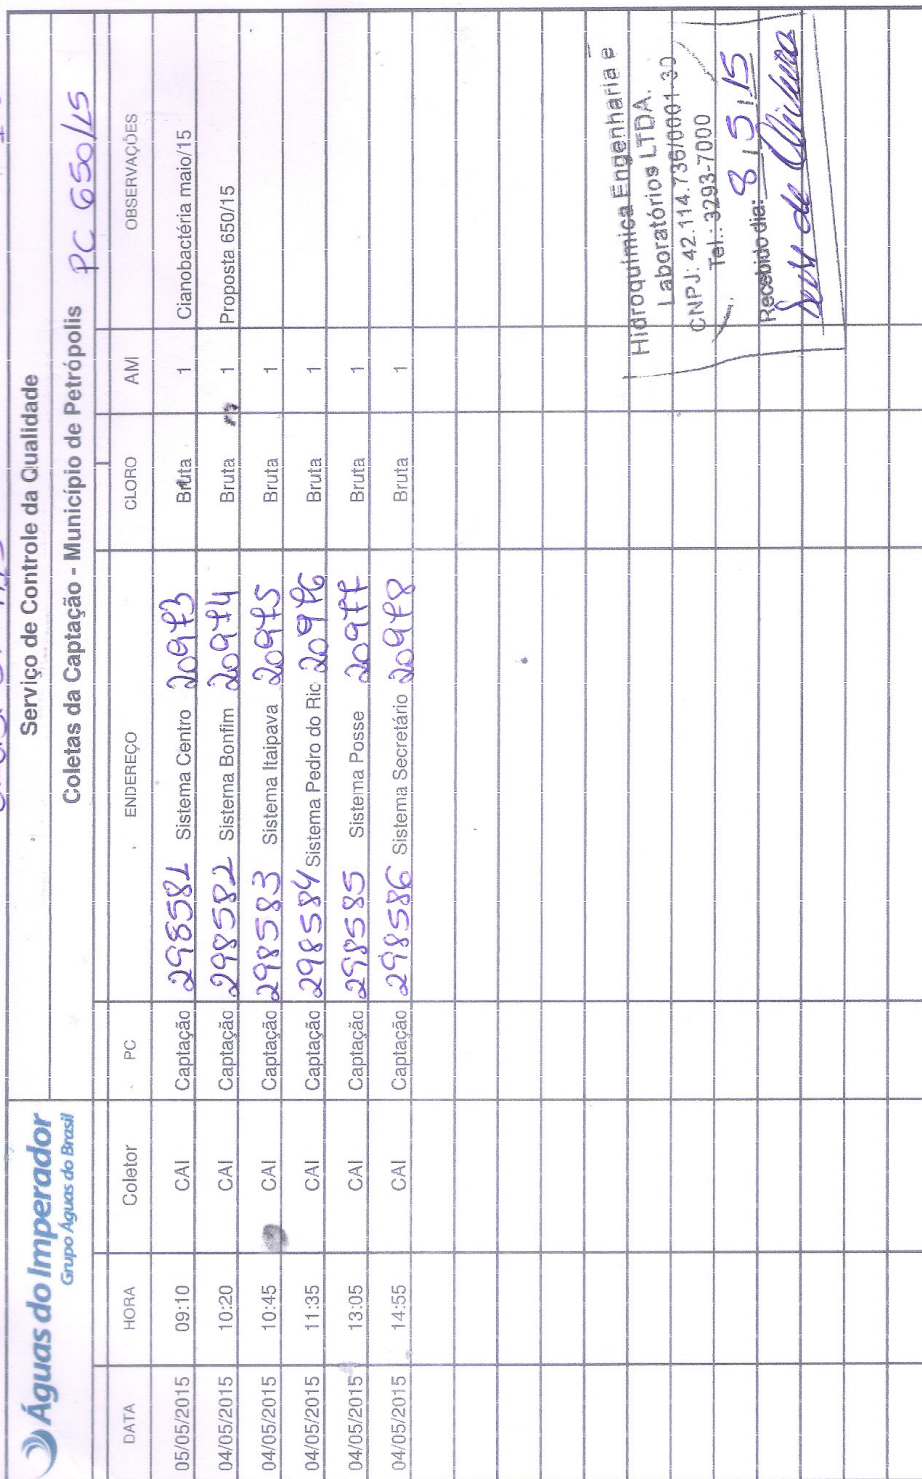 Águas do Imperador
Grupo Águas do Brasil
Serviço de Controle da Qualidade
Coletas da Captação - Município de Petrópolis PC 650/15
DATA HORA Coletor PC ENDEREÇO CLORO AMI OBSERVAÇÕES
05/05/2015 09:10 CAI Captação 298581 Sistema Centro 20973 Bruta 1 Cianobactéria maio/15
04/05/2015 10:20 CAI Captação 298582 Sistema Bonfim 20974 Bruta 1 Proposta 650/15
04/05/2015 10:45 CAI Captação 298583 Sistema Itaipava 20975 Bruta 1
04/05/2015 11:35 CAI Captação 298584 Sistema Pedro do Rio 20976 Bruta 1
04/05/2015 13:05 CAI Captação 298585 Sistema Posse 20977 Bruta 1
04/05/2015 14:55 CAI Captação 298586 Sistema Secretário 20978 Bruta 1
Hidroquímica Engenharia e
Laboratórios LTDA.
CNPJ: 42.114.736/0001-30
Tel.: 3293-7000
Recebido dia: 8/5/15
de